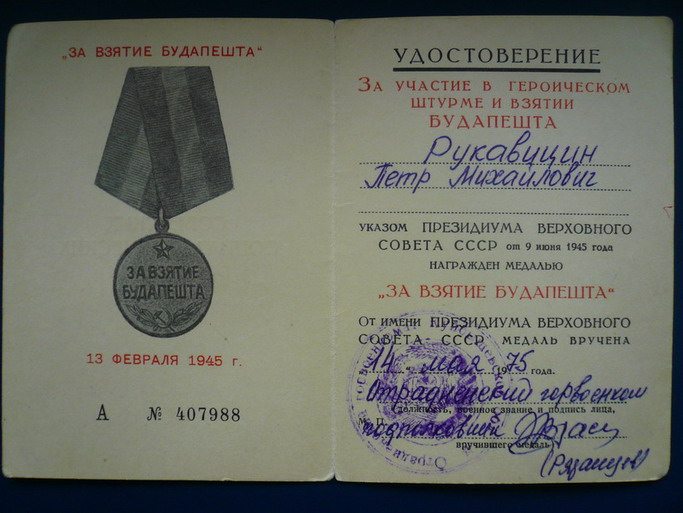 „ЗА ВЗЯТИЕ БУДАПЕШТА“
ЗА ВЗЯТИЕ
БУДАПЕШТА
13 ФЕВРАЛЯ 1945 г.
А № 407988
УДОСТОВЕРЕНИЕ
ЗА УЧАСТИЕ В ГЕРОИЧЕСКОМ
ШТУРМЕ И ВЗЯТИИ
БУДАПЕШТА
Рукавицин
Петр Михайлович
УКАЗОМ ПРЕЗИДИУМА ВЕРХОВНОГО
СОВЕТА СССР от 9 июня 1945 года
НАГРАЖДЕН МЕДАЛЬЮ
„ЗА ВЗЯТИЕ БУДАПЕШТА“
От имени ПРЕЗИДИУМА ВЕРХОВНОГО
СОВЕТА СССР МЕДАЛЬ ВРУЧЕНА
14 мая 1975 года.
Отрадненский горвоенком
(должность, военное звание и подпись лица,
подполковник
вручившего медаль)
(Рязанцев)